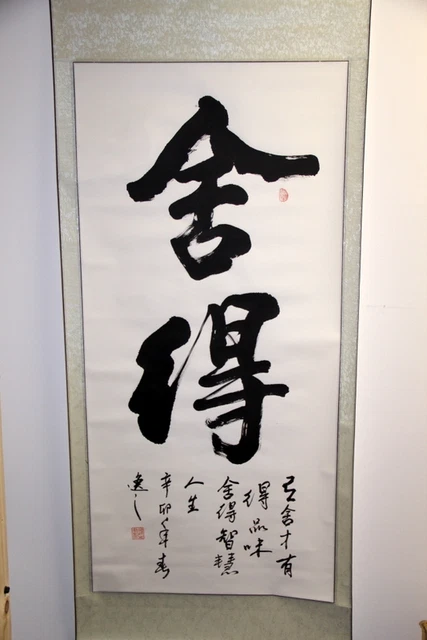 舍得
有舍才有
得品味
舍得智慧
人生
辛卯年春
逸之